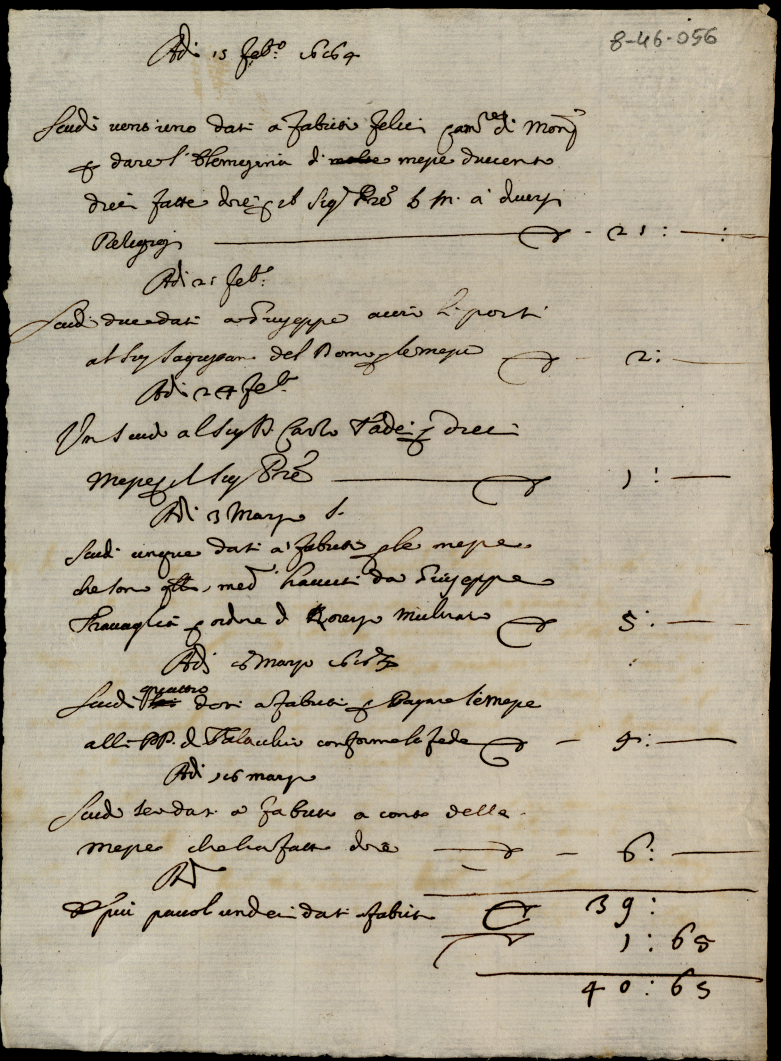 8-46-056
Adi 15 feb.o 1664
Scudi vent'uno dati a fabriti felici cam.re di Mons.r
p dare l'Elemosina di messe ducento
dieci fatte dire p il Sig.r Pre b. m. a diversi
Religiosi - 21 :
Adi 21 feb.o
Scudi due dati a Giuseppe li porti
al Sig. Sagrestano del p le messe 2:
Adi 24 feb.o
Un scudo al Sig. D. Carlo Tadei p dieci
messe p il Sig. Pre 1 :
Adi 3 Marzo
Scudi cinque dati a fabriti p le messe
che son hauuti da Giuseppe
Trauaglia p ordine d 5 :
Adi Marzo
Scudi quattro dati a fabriti p pagare le messe
alli PP. d conforme la fede - 4:
Adi 16 marzo
Scudi sei dati a fabriti a conto delle
messe che ha fatte dire - 6:
Adi
E piu pauoli undeci dati a fabriti 39 :
1 : 65
40 : 65